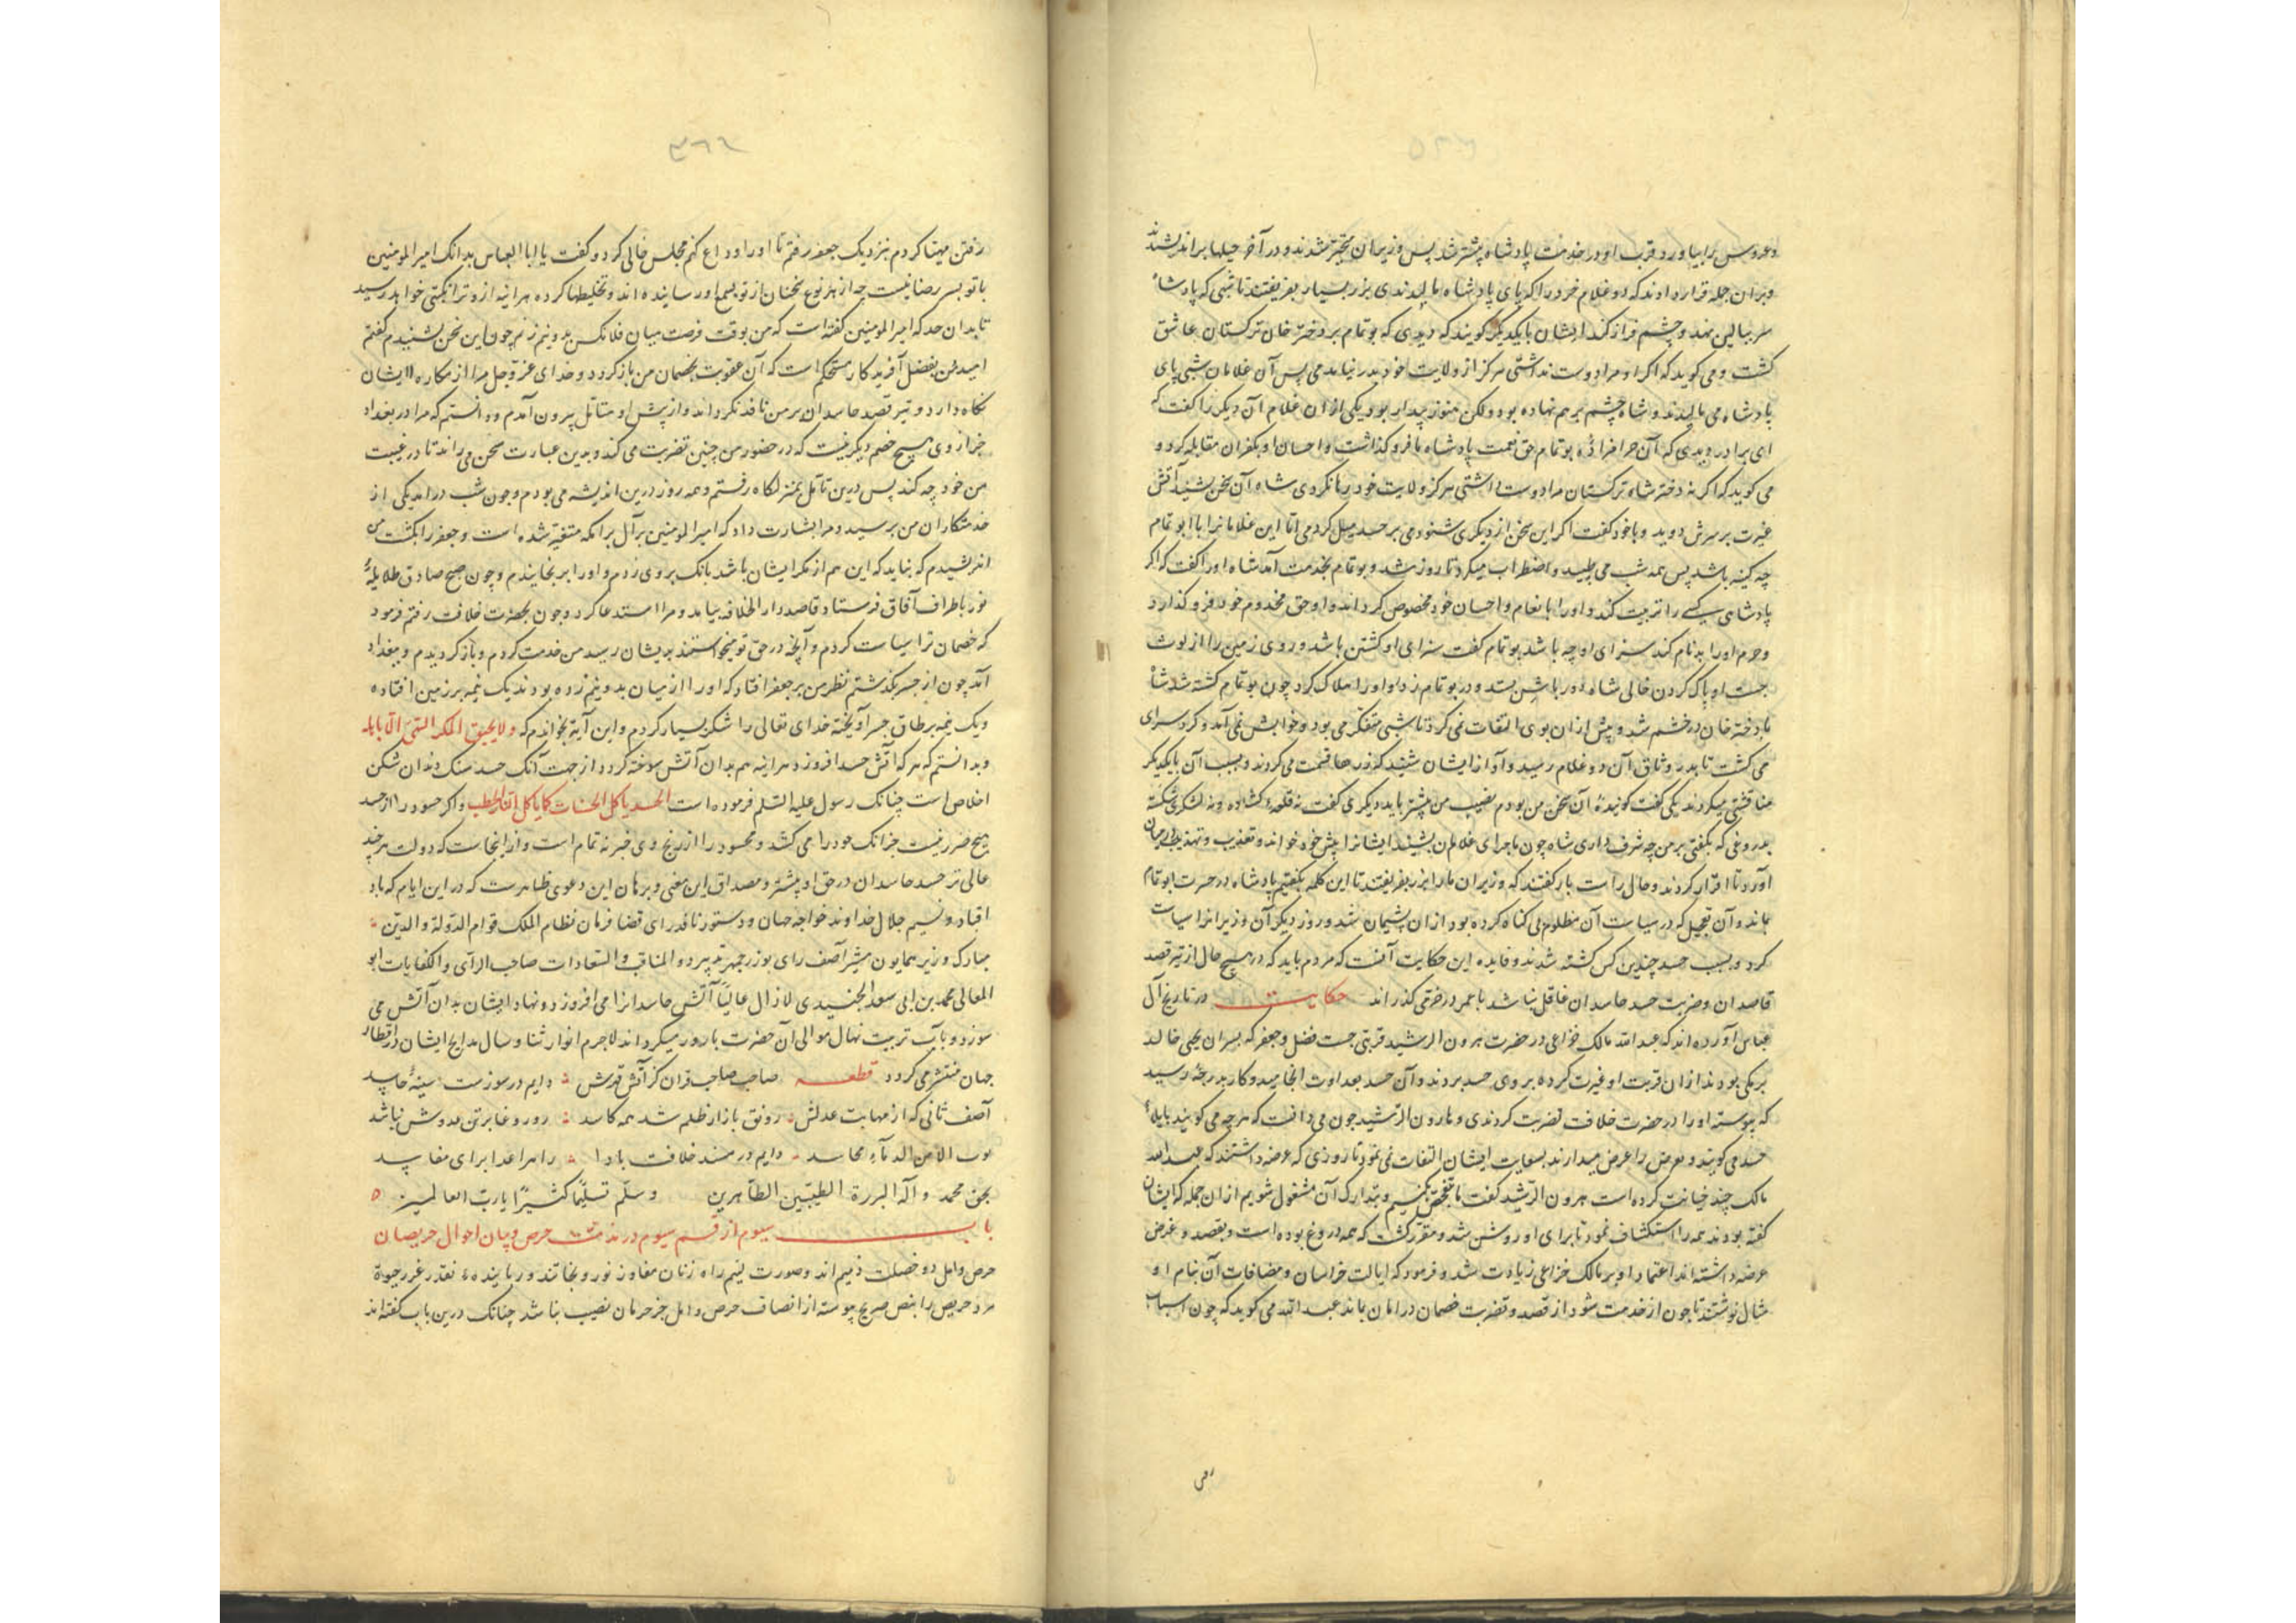 وعروس را بیاورد و قرب او در خدمت پادشاه بیشتر شد پس وزیران متحیر شدند و در آخر حیلها براندیشیدند
و بران جمله قرار دادند که دو غلام خرد را که پای پادشاه مالیدندی بزر بسیار بفریفتند تا شبی که پادشاه
سر ببالین نهد و چشم فراز کند ایشان با یکدیگر گویند که دیدی که بوتمام بر دختر خان ترکستان عاشق
گشت و می گوید که اگر او مرا دوست نداشتی هرگز از ولایت خود بدر نیامدمی پس آن غلامان شبی پای
پادشاه می مالیدند و شاه چشم بر هم نهاده بود ولکن هنوز بیدار بود یکی ازان غلام آن دیگر را گفت که
ای برادر دیدی که آن حرامزاده بوتمام حق نعمت پادشاه ما فرو گذاشت و احسان او بکفران مقابله کرد و
می گوید که اگر نه دختر شاه ترکستان مرا دوست داشتی هرگز ولایت خود رها نکردی شاه آن سخن بشنید آتش
غیرت بر سرش دوید و با خود گفت اگر این سخن از دیگری شنودمی بر حسد میل کردمی اما این غلامانرا با ابو تمام
چه کینه باشد پس همه شب می طپید و اضطراب میکرد تا روز شد و بوتمام بخدمت آمد شاه او را گفت که اگر
پادشاهی کسی را تربیت کند و او را بانعام و احسان خود مخصوص گرداند و او حق مخدوم خود فرو گذارد
و حرم او را بدنام کند سزای او چه باشد بوتمام گفت سزای او کشتن باشد و روی زمین را از لوث
جست او پاک کردن خالی شاه دور باش بستد و در بوتمام زد و او را هلاک کرد چون بوتمام کشته شد شاه
با دختر خان در خشم شد و پیش ازان بوی التفات نمی کرد تا شبی متفکر می بود و خوابش نمی آمد و گرد سرای
می گشت تا بدر وثاق آن دو غلام رسید و آواز ایشان شنید که زرها قسمت می کردند و بسبب آن با یکدیگر
مناقشتی میکردند یکی گفت گوینده آن سخن من بودم نصیب من بیشتر باید دیگری گفت نه قلعه گشاده و نه لشکری شکسته
بدروغی که بگفتی بر من چه شرف داری شاه چون ماجرای غلامان بشنید ایشانرا پیش خود خواند و تعذیب و تهدید در میان
آورد تا اقرار کردند و حال راست باز گفتند که وزیران ما را بزر بفریفتند تا این کلمه بگفتیم پادشاه در حسرت ابو تمام
بماند و آن تعجیل که در سیاست آن مظلوم بی گناه کرده بود ازان پشیمان شد و روز دیگر آن وزیرانرا سیاست
کرد و بسبب حسد چندین کس کشته شدند و فایده این حکایت آنست که مردم باید که در هیچ حال از تیر قصد
قاصدان و ضربت حسد حاسدان غافل نباشد با عمر در خوشی گذراند حکایت در تاریخ آل
عباس آورده اند که عبد الله مالک خزاعی در حضرت هرون الرشید قربتی جست فضل و جعفر که پسران یحیی خالد
برمکی بودند ازان قربت او غیرت کرده بر وی حسد بردند و آن حسد بعداوت انجامید و کار بدرجه رسید
که پیوسته او را در حضرت خلافت تضریب کردندی و هارون الرشید چون می دانست که هر چه می گویند بایلهٔ
حسد می گویند و بغرض را عرض میدارند بسعایت ایشان التفات نمی نمود تا روزی که عرضه داشتند که عبد الله
مالک چند خیانت کرده است هرون الرشید گفت ما تفحص کنیم و بتدارک آن مشغول شویم ازان جمله که ایشان
گفته بودند همه را استکشاف نمود تا برای او روشن شد و مقرر گشت که همه دروغ بوده است و بقصد و غرض
عرضه داشته اند اعتماد او بر مالک خزاعی زیادت شد و فرمود که ایالت خراسان و مضافات آن بنام او
مثال نوشتند تا چون از خدمت شود از قصد و تضریب خصمان در امان باند عبد الله می گوید که چون اسباب
رفتن
رفتن مهیا کردم بنزدیک جعفر رفتم تا او را وداع کنم مجلس خالی کرد و گفت یا ابا العباس بدانک امیر المومنین
با تو بسر رضا نیست چه از هر نوع سخنان از تو بسمع او رسانیده اند و تخلیطها کرده هراینه ازو ترا نکبتی خواهد رسید
تا بدان حد که امیر المومنین گفته است که من بوقت فرصت میان فلانکس بدو نیم زنم چون این سخن بشنیدم گفتم
امید من بفضل آفریدکار مستحکم است که آن عقوبت بخصمان من باز گردد و خدای عز و جل مرا از مکاره ایشان
نگاه دارد و تیر قصد حاسدان بر من نافذ نگرداند و از پیش او متأمل بیرون آمدم و دانستم که مرا در بغداد
جز از وی هیچ خصم دیگر نیست که در حضور من چنین تضریب می کند و بدین عبارت سخن می راند تا در غیبت
من خود چه کند پس درین تأمل بمنزلگاه رفتم و همه روز درین اندیشه می بودم و چون شب درآمد یکی از
خدمتکاران من برسید و مرا بشارت داد که امیر المومنین بر آل برامکه متغیر شده است و جعفر را بکشت من
اندیشیدم که نباید که این هم از مکر ایشان باشد بانک بر وی زدم و او را برنجانیدم و چون صبح صادق طلایهٔ
نور باطراف آفاق فرستاد قاصد دار الخلافه بیامد و مرا استدعا کرد و چون بحضرت خلافت رفتم فرمود
که خصمان ترا سیاست کردم و آنچه در حق تو میخواستند بدیشان رسید من خدمت کردم و بازگردیدم و ببغداد
آمد چون از جسر بگذشتم نظر من بر جعفر افتاد که او را از میان بدو نیم زده بودند یک نیمه بر زمین افتاده
و یک نیمه بر طاق جسر آویخته خدای تعالی را شکر بسیار کردم و این آیة بخواندم که ولا یحیق المکر السیئ الا باهله
و بدانستم که هر که آتش حسد افروزد هراینه هم بدان آتش سوخته گردد از جهت آنک حسد سنک دندان شکن
اخلاص است چنانک رسول علیه السلم فرموده است الحسد یاکل الحسنات کما یاکل النار الحطب و اگر حسود را از حسد
هیچ ضرر نیست جز آنک خود را می کشد و محسود را از رنج وی خبر نه تمام است و از اینجاست که دولت هر چند
عالی تر حسد حاسدان در حق او بیشتر و مصداق این معنی و برهان این دعوی ظاهرست که در این ایام که باد
اقبال و نسیم جلال خداوند خواجه جهان و دستور نافذ رای قضا فرمان نظام الملک قوام الدولة والدین
مبارک وزیر همایون مشیر آصف رای بوزرجمهر تدبیر ذو المناقب والسعادات صاحب الرآی والکفایات ابو
المعالی محمد بن ابی سعد الجنیدی لازال عالیًا آتش حاسدانرا می افروزد و نهاد ایشان بدان آتش می
سوزد و بآب تربیت نهال موالی آن حضرت بارور میگرداند لاجرم انوار ثنا و سال مدایح ایشان در اقطار
جهان منتشر می گردد قطعه صاحب صاحب قران کز آتش قهرش دایم در سوزست سینهٔ حاسد
آصف ثانی که از مهابت عدلش رونق بازار ظلم شد همه کاسد روروغابرتن عدوش نباشد
ثوب الامن الدماء مجاسد دایم در مسند خلافت بادا رامر اعدا برای مفاسد
بحق محمد وآله البررة الطیبین الطاهرین وسلم تسلیمًا کثیرًا یا رب العالمین
باب سیوم از قسم سیوم در مذمت حرص و بیان احوال حریصان
حرص و امل دو خصلت ذمیم اند و صورت لئیم راه زنان مفاوز نور و نجاتند و رباینده نقد غرر حیوة
مرد حریص را بنص صریح پیوسته از انصاف حرص و امل جز حرمان نصیب نباشد چنانک درین باب گفته اند